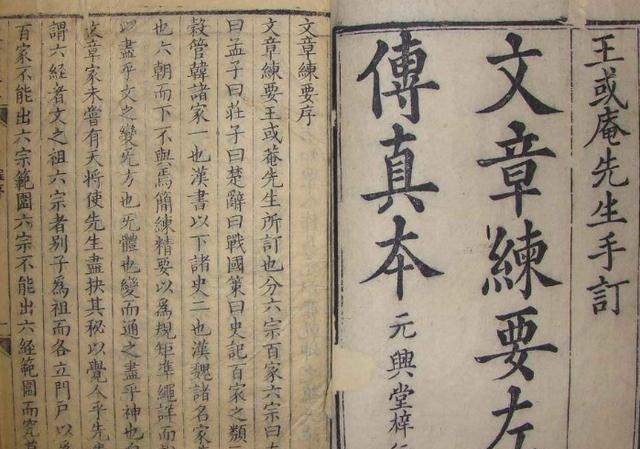 王或庵先生手訂
文章練要左
傳真本
元興堂梓行
文章練要序
文章練要王或菴先生所訂也分六宗百家六宗曰左
曰孟子曰莊子曰楚辭曰戰國策曰史記百家之類二
穀管韓諸家一也漢書以下諸史二也漢魏諸名家
也六朝而下不與焉簡練精要以為規矩準繩詳而
以盡乎文之變旡方也旡體也變而通之盡乎神也
文章家未嘗有天將使先生盡抉其秘以覺人乎先
謂六經者文之祖六宗者別子為祖而各立門戶以
百家不能出六宗範圍六宗不能出六經範圍而究